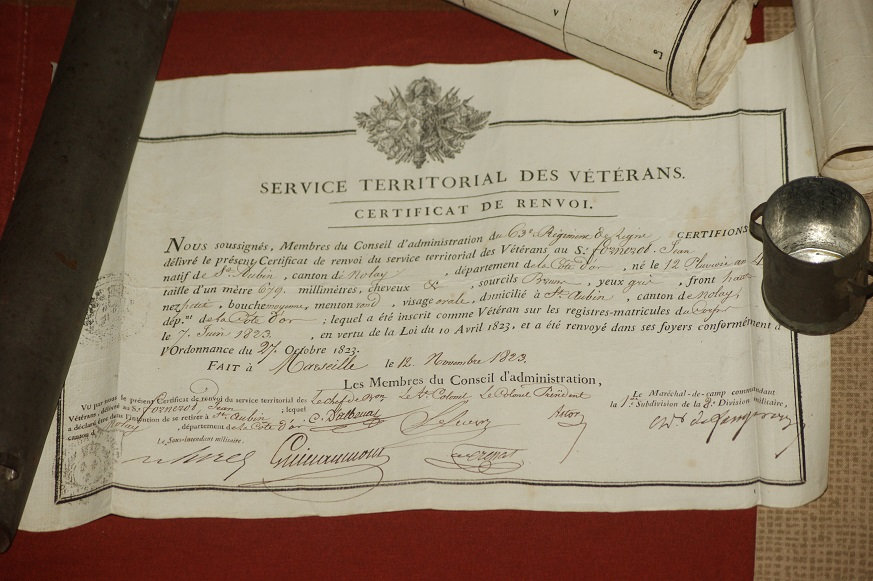 SERVICE TERRITORIAL DES VÉTÉRANS.
CERTIFICAT DE RENVOI.
Nous soussignés, Membres du Conseil d'administration du 63e Régiment de Ligne, CERTIFIONS
délivré le présent Certificat de renvoi du service territorial des Vétérans au Sr. fornerot Jean
natif de St Aubin, canton de Nolay, département de la Côte d'or, né le 12 Pluviose an 4
taille d'un mètre 679 millimètres, cheveux &, sourcils Brun, yeux gris, front haut
nez petit, bouche moyenne, menton rond, visage ovale, domicilié à St Aubin, canton de Nolay,
dép.nt de la Côte d'or; lequel a été inscrit comme Vétéran sur les registres-matricules du Corps
le 7 Juin 1823, en vertu de la Loi du 10 Avril 1823, et a été renvoyé dans ses foyers conformément à
l'Ordonnance du 27 Octobre 1823.
FAIT à Marseille le 12 Novembre 1823.
Les Membres du Conseil d'administration,
Le chef de Bon Le Lt Colonel Le Colonel Président
Vu par nous le présent Certificat de renvoi du service territorial des
Vétérans, délivré au Sr. fornerot Jean; lequel
a déclaré être dans l'intention de se retirer à St Aubin
canton de Nolay, département de la Côte d'or
Le Sous-intendant militaire,
Le Maréchal-de-camp commandant
la 1re Subdivision de la 8e Division militaire,